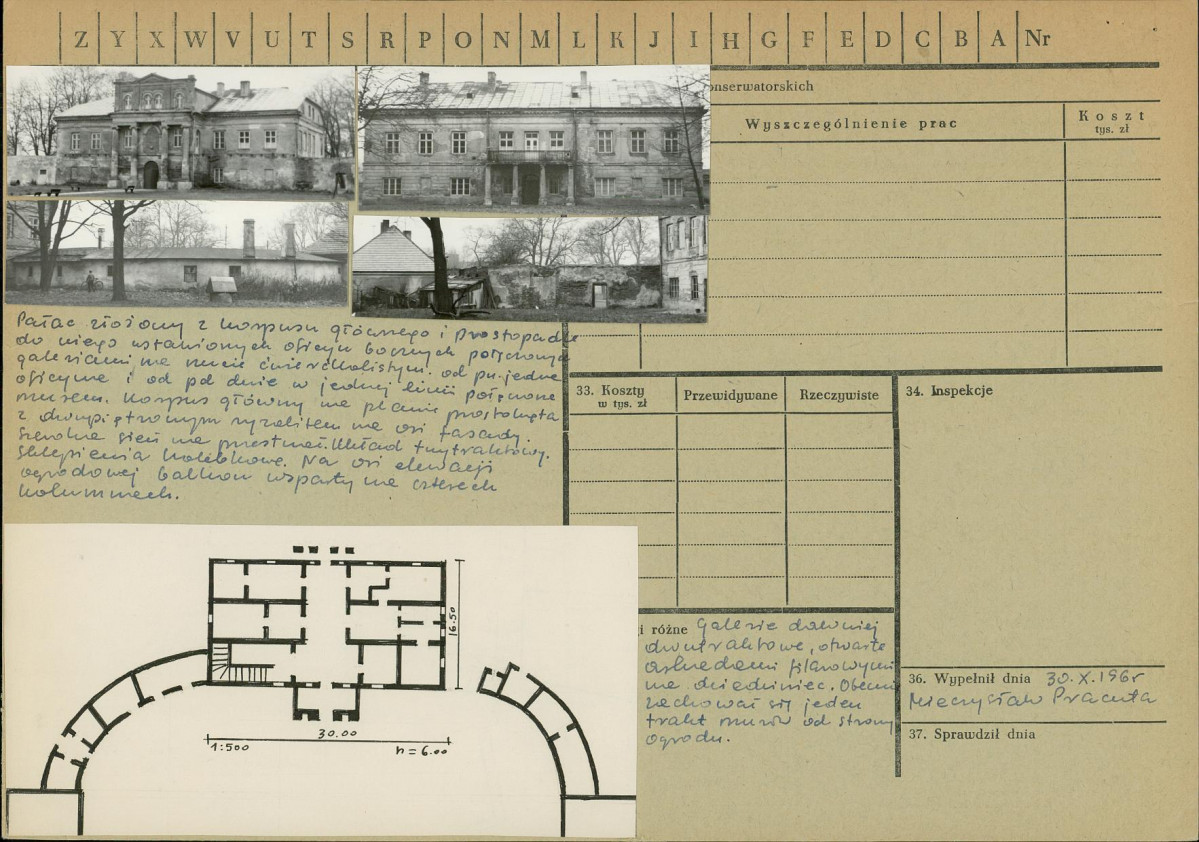 Z Y X W V U T S R P O N M L K J I H G F E D C B A Nr
onserwatorskich
Wyszczególnienie prac
Koszt
tys. zł
Pałac złożony z korpusu głównego i prostopadle
do niego ustawionych oficyn bocznych połączonych
galeriami na rzucie ćwierćkolistym. od pn. jedna
oficyna i od pd dwie w jednej linii połączone
murem. Korpus główny na planie prostokąta
z dwupiętrowym ryzalitem na osi fasady.
Szeroka sień na przestrzał. Układ trzytraktowy.
Sklepienia kolebkowe. Na osi elewacji
ogrodowej balkon wsparty na czterech
kolumnach.
33. Koszty
w tys. zł
Przewidywane
Rzeczywiste
34. Inspekcje
i różne Galerie dawniej
dwutraktowe, otwarte
arkadami filarowymi
na dziedziniec. Obecnie
zachował się jeden
trakt murów od strony
ogrodu.
36. Wypełnił dnia 30.X.196r
Mieczysław Pracuta
37. Sprawdził dnia
16.50
30.00
1:500
h = 6.00